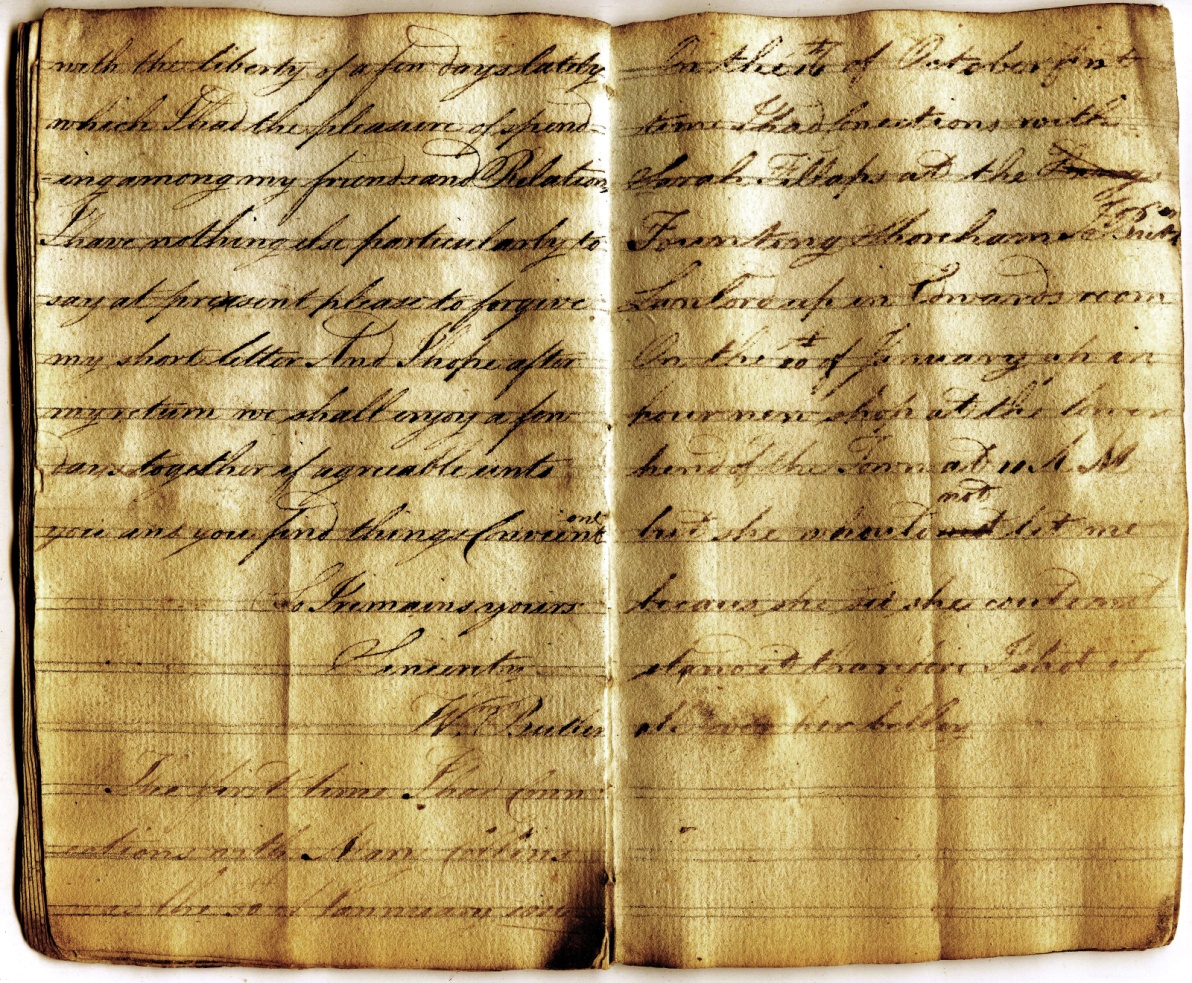 with the liberty of a few days lately
which I had the pleasure of spend-
-ing among my friends and Relation
I have nothing else particularly to
say at present please to forgive
my short letter And I hope after
my return we shall enjoy a few
days together if agreeable unto
you ans you find things Convient
one
So I remains yours
Sincerity
W. Butler
The first time I had Conn
ections with Collins
was the 20 of Jannuary
On the of October first
time I had Conections with
Sarah Fillaps at the
Shoreham
Lanlord up in Edwards room
On the 10th of January up in
hour new shop at the lower
hend of the Town at 11 A M
not
but she whould let me
becaus she
stand it I did it
over her belley